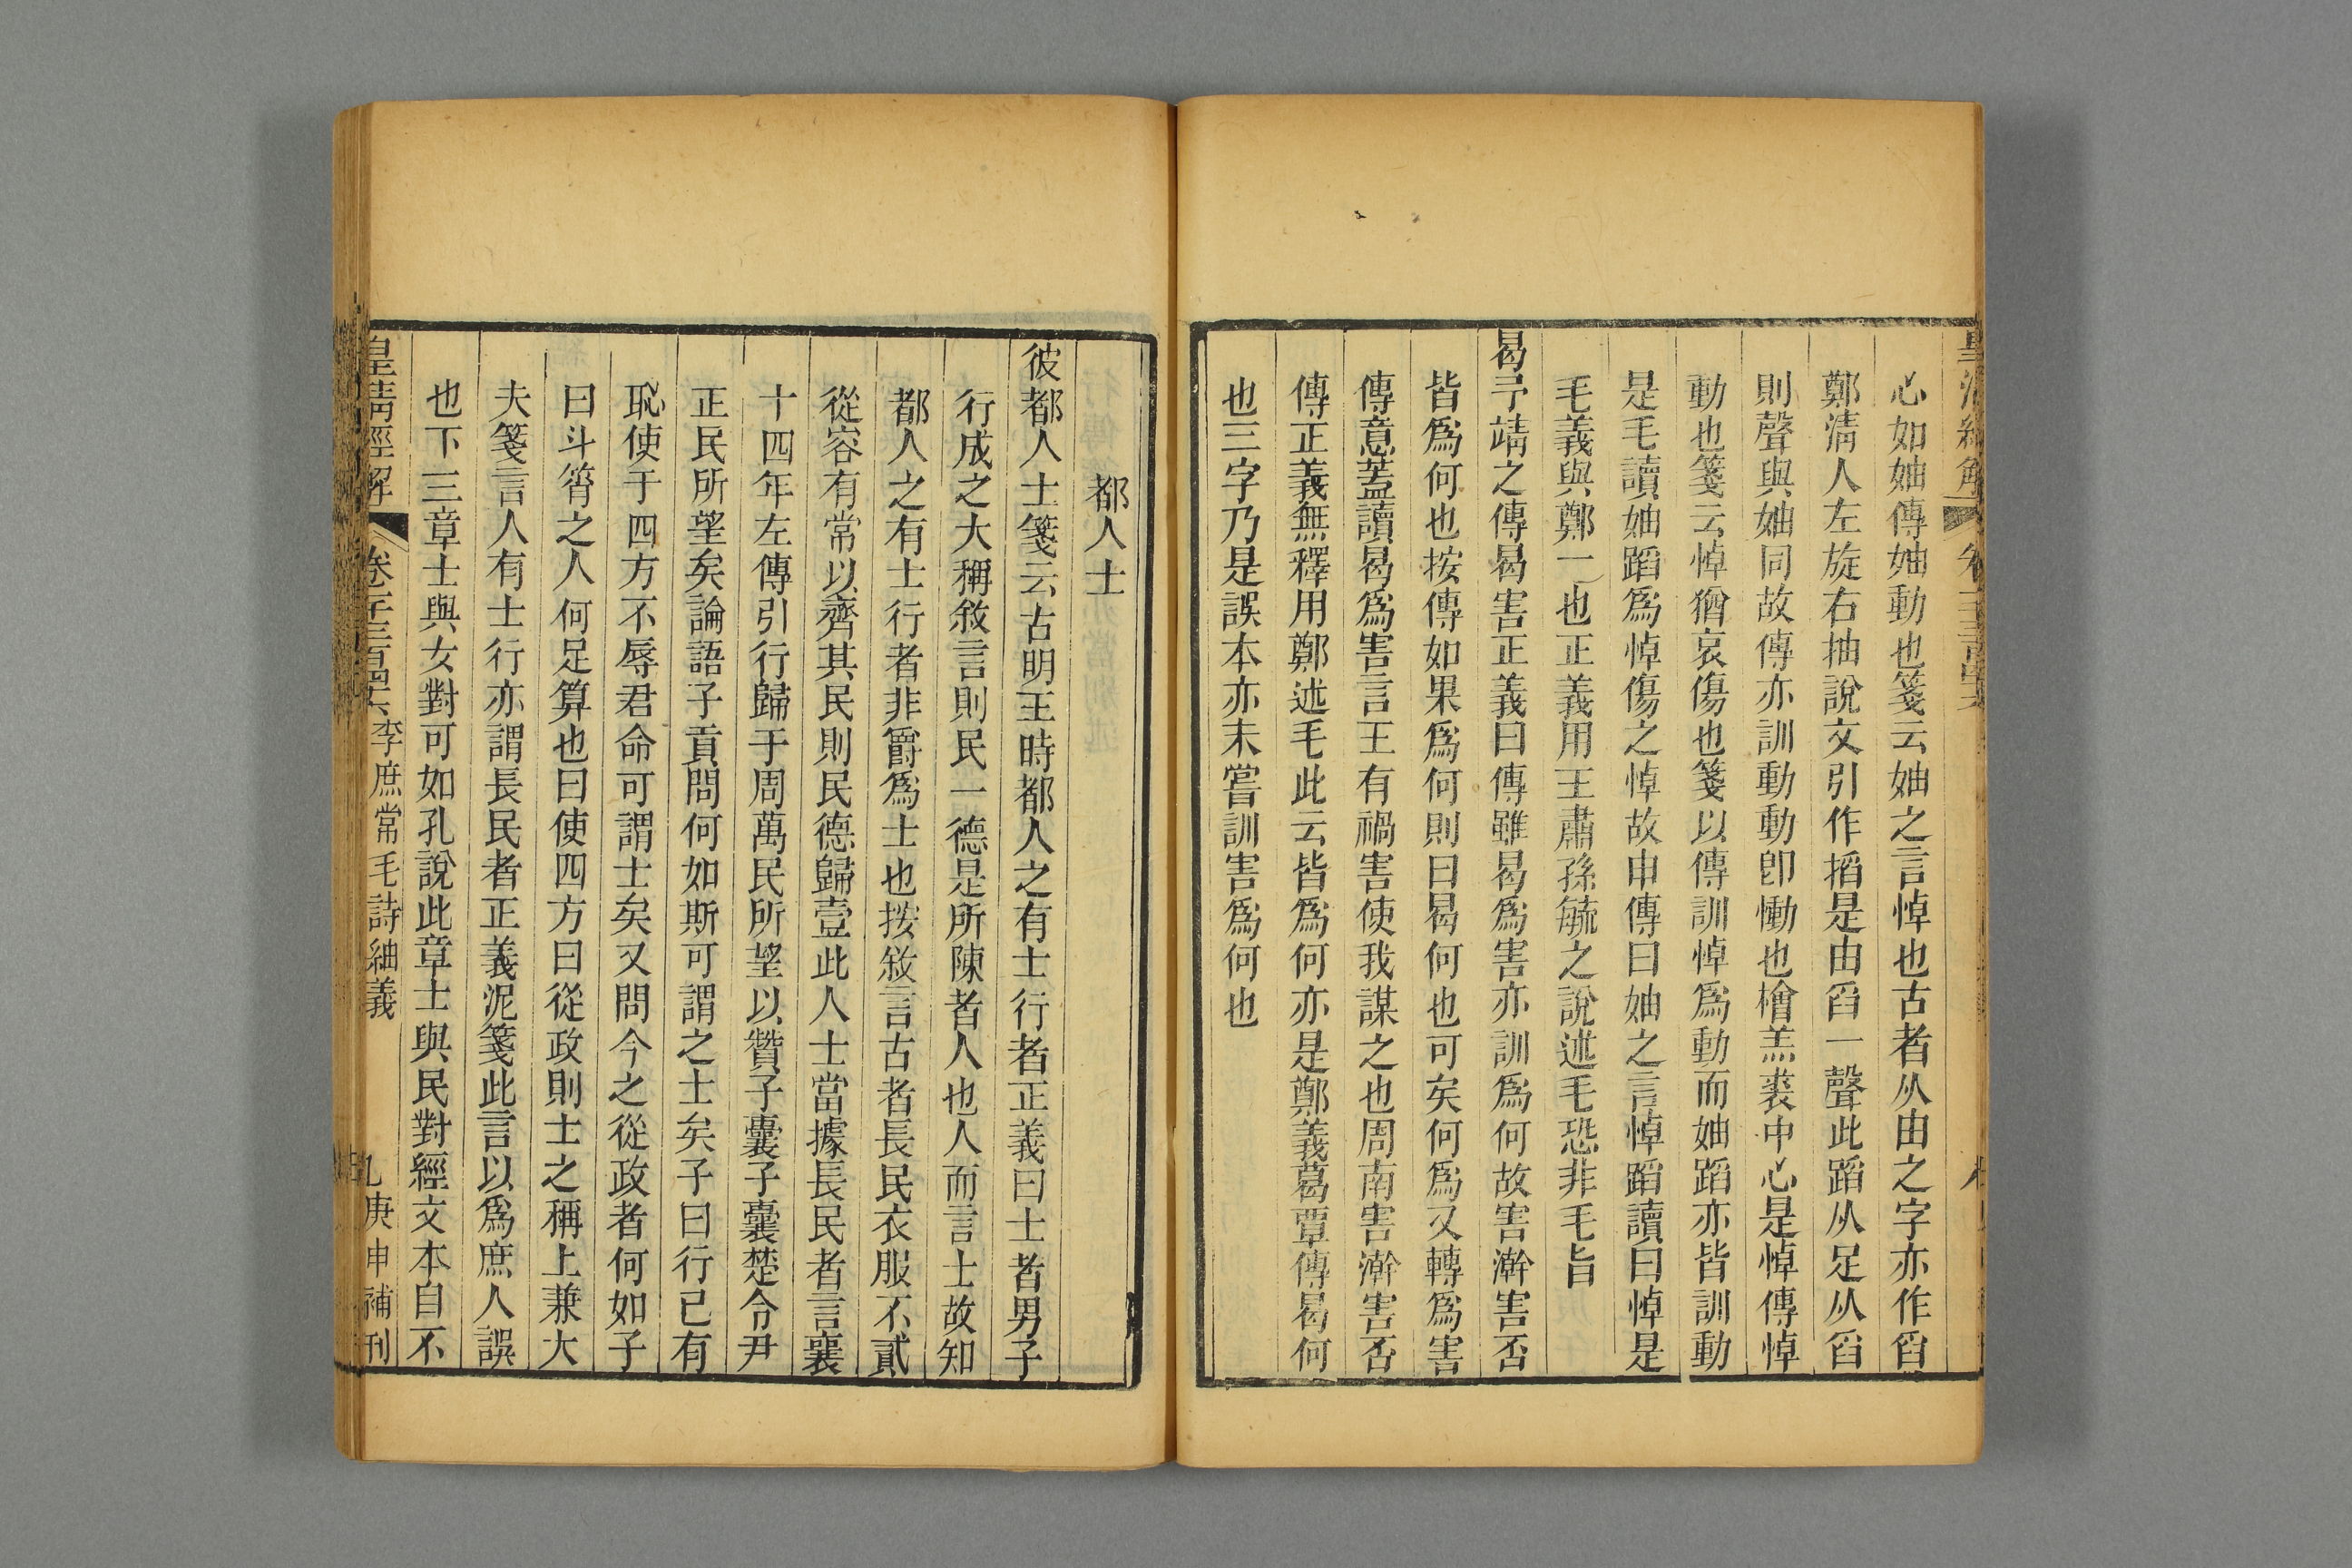 心如妯傳妯動也箋云妯之言悼也古者从由之字亦作舀
鄭清人左旋右抽說文引作搯是由舀一聲此蹈从足从舀
則聲與妯同故傳亦訓動動卽慟也檜羔裘中心是悼傳悼
動也箋云悼猶哀傷也箋以傳訓悼爲動而妯蹈亦皆訓動
是毛讀妯蹈爲悼傷之悼故申傳曰妯之言悼蹈讀曰悼是
毛義與鄭一也正義用王肅孫毓之說述毛恐非毛旨
曷予靖之傳曷害正義曰傳雖曷爲害亦訓爲何故害澣害否
皆爲何也按傳如果爲何則曰曷何也可矣何爲又轉爲害
傳意葢讀曷爲害言王有禍害使我謀之也周南害澣害否
傳正義無釋用鄭述毛此云皆爲何亦是鄭義葛覃傳曷何
也三字乃是誤本亦未嘗訓害爲何也
都人士
彼都人士箋云古明王時都人之有士行者正義曰士者男子
行成之大稱敘言則民一德是所陳者人也人而言士故知
都人之有士行者非爵爲士也按敘言古者長民衣服不貳
從容有常以齊其民則民德歸壹此人士當據長民者言襄
十四年左傳引行歸于周萬民所望以贊子囊子囊楚令尹
正民所望矣論語子貢問何如斯可謂之士矣子曰行己有
恥使于四方不辱君命可謂士矣又問今之從政者何如子
曰斗筲之人何足算也曰使四方曰從政則士之稱上兼大
夫箋言人有士行亦謂長民者正義泥箋此言以爲庶人誤
也下三章士與女對可如孔說此章士與民對經文本自不
皇清經解
李庶常毛詩紬義
庚申補刊